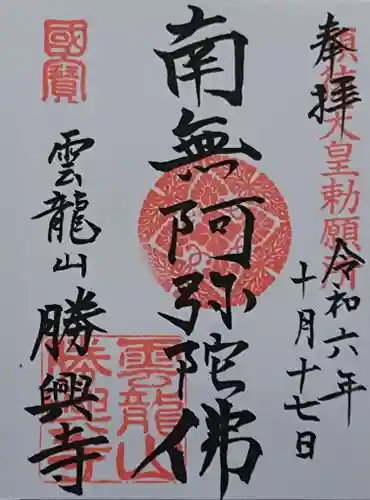 奉拝
順徳天皇勅願所
令和六年
十月十七日
南無阿弥陀佛
國寳
雲龍山
勝興寺
雲龍山
勝興寺